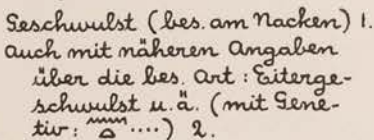 Geschwulst (bes. am Nacken) 1.
auch mit näheren Angaben
über die bes. Art: Eiterge-
schwulst u. ä. (mit Gene-
tiv: ....) 2.